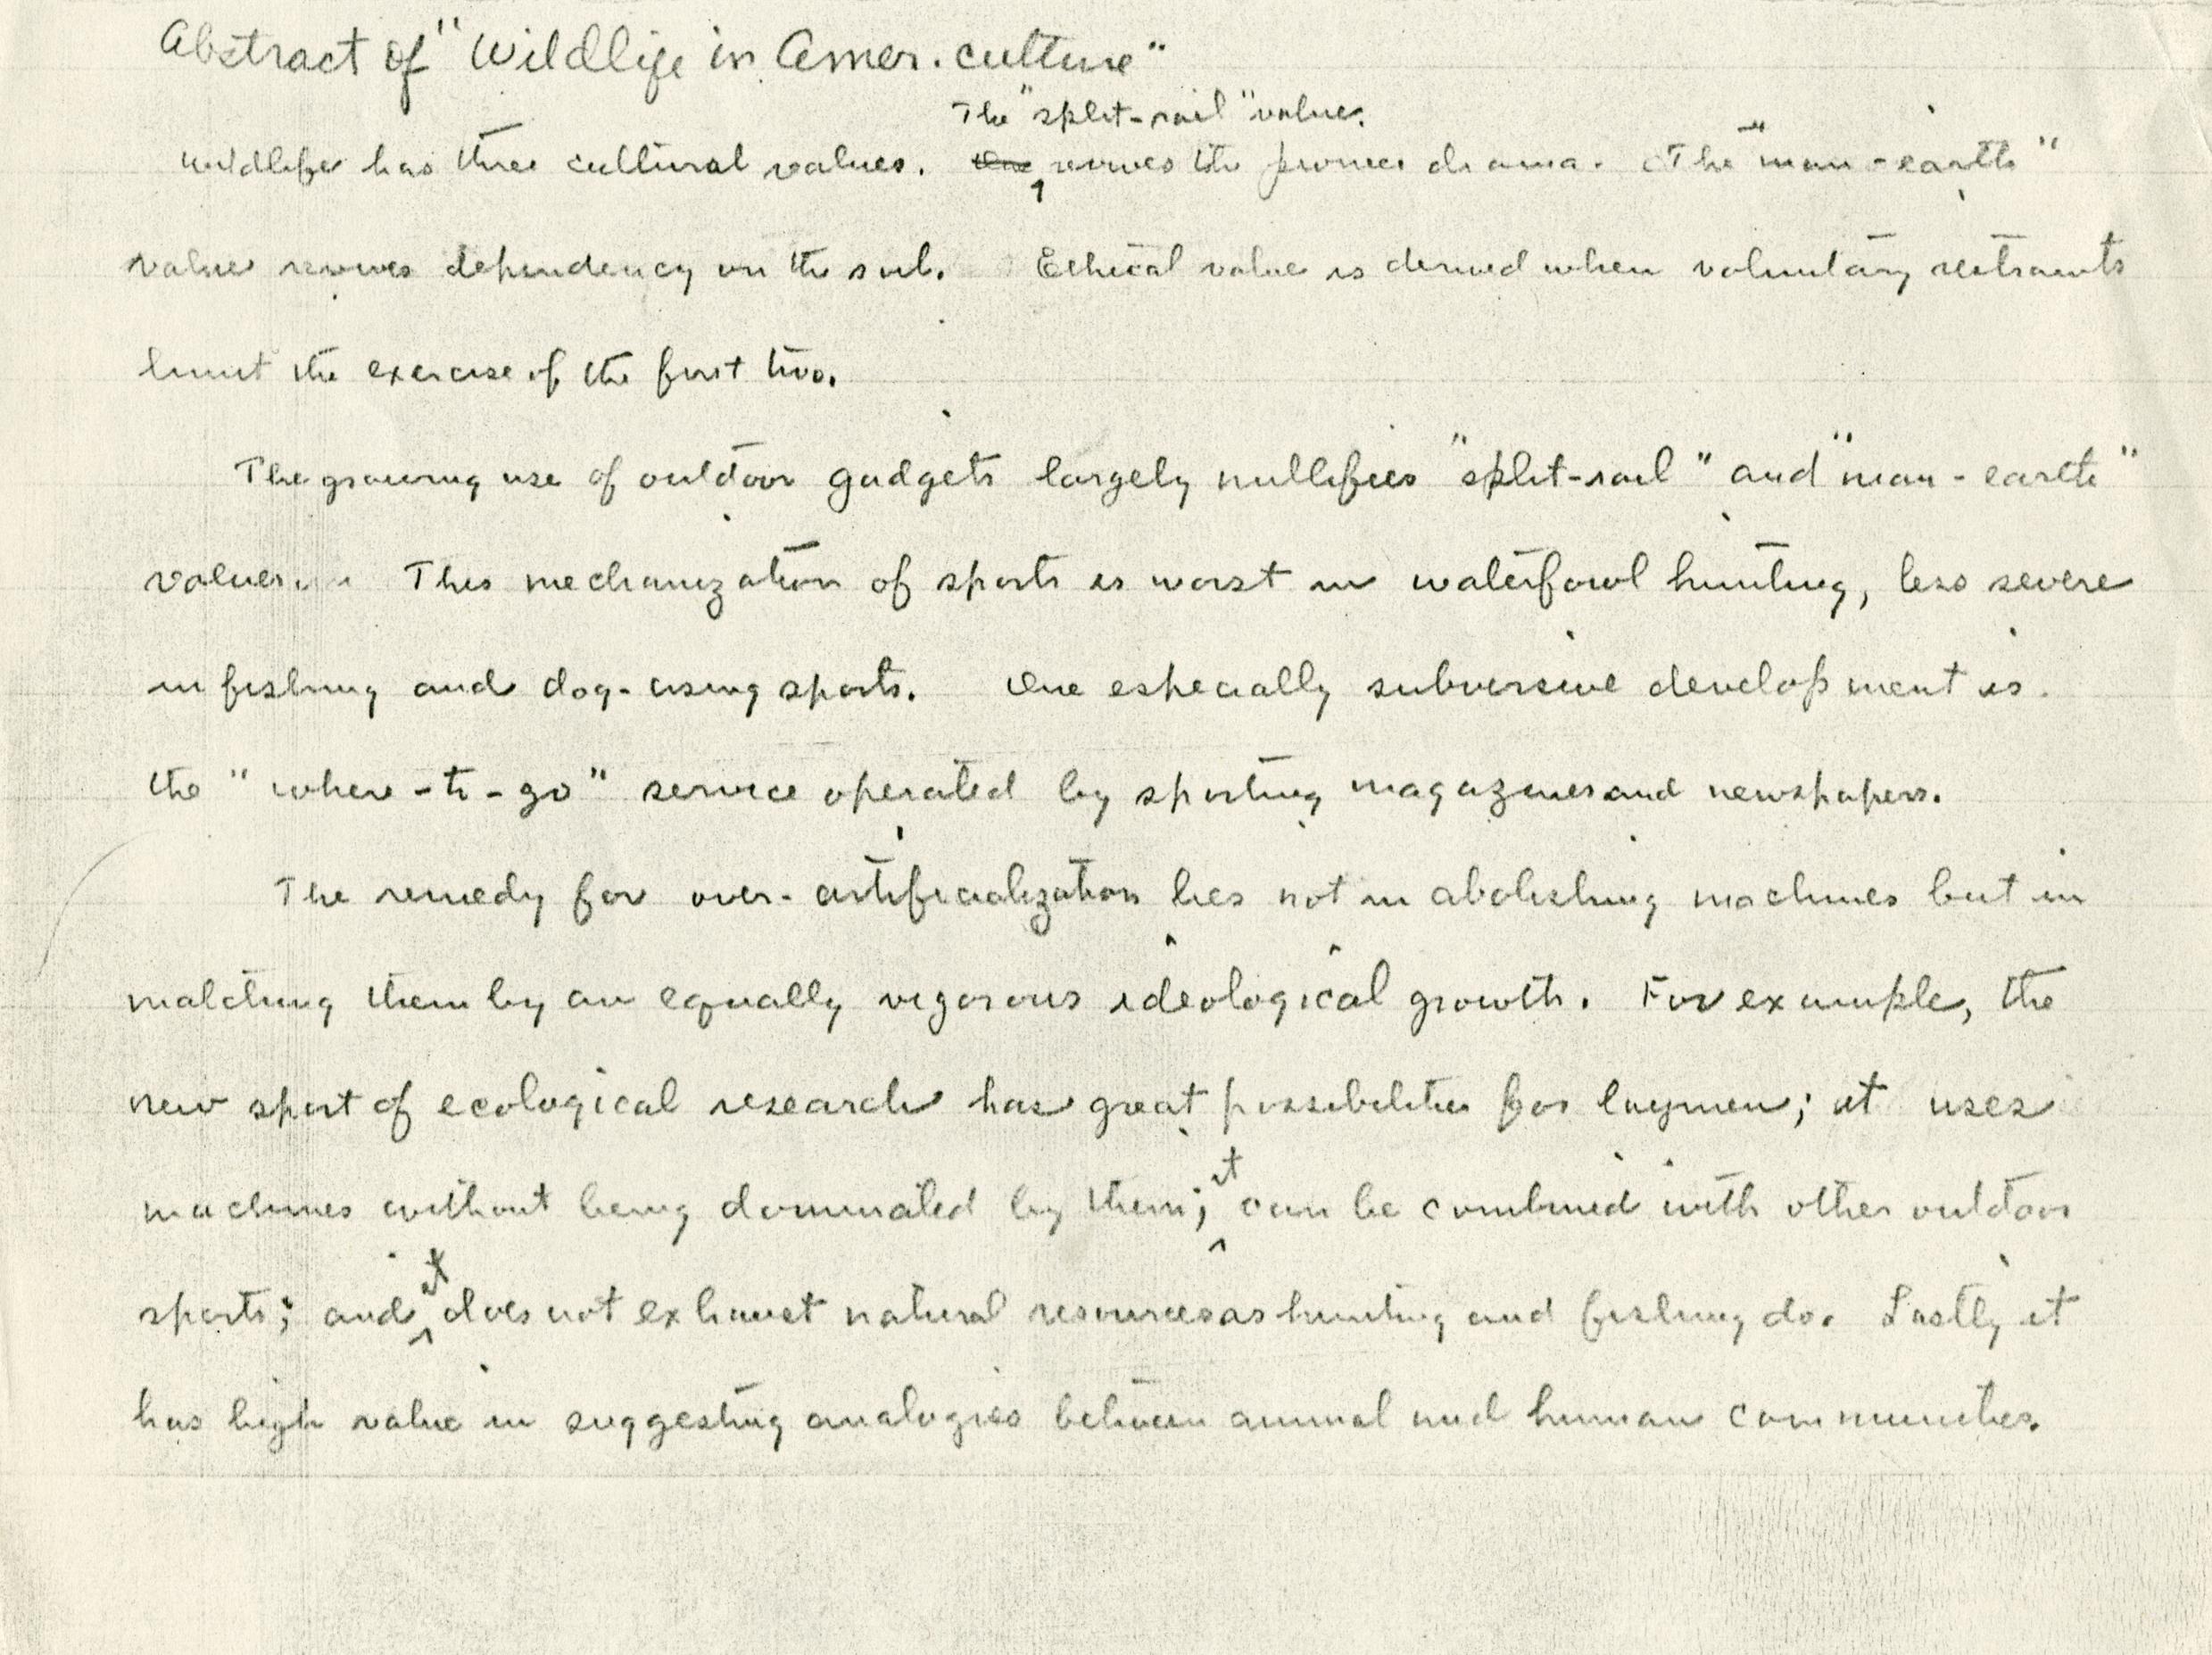 Abstract of "Wildlife in Amer. culture"
The "split-rail" value
Wildlife has three cultural values. One revives the pioneer drama. The "man-earth"
value revives dependency on the soil. Ethical value is derived when voluntary restraints
limit the exercise of the first two.
The growing use of outdoor gadgets largely nullifies "split-rail" and "man-earth"
values. This mechanization of sports is worst in waterfowl hunting, less severe
in fishing and dog-using sports. One especially subversive development is
the "where-to-go" service operated by sporting magazines and newspapers.
The remedy for over-artificialization lies not in abolishing machines but in
matching them by an equally vigorous ideological growth. For example, the
new sport of ecological research has great possibilities for laymen; it uses
machines without being dominated by them; it can be combined with other outdoor
sports; and it does not exhaust natural resources as hunting and fishing do. Lastly it
has high value in suggesting analogies between animal and human communities.